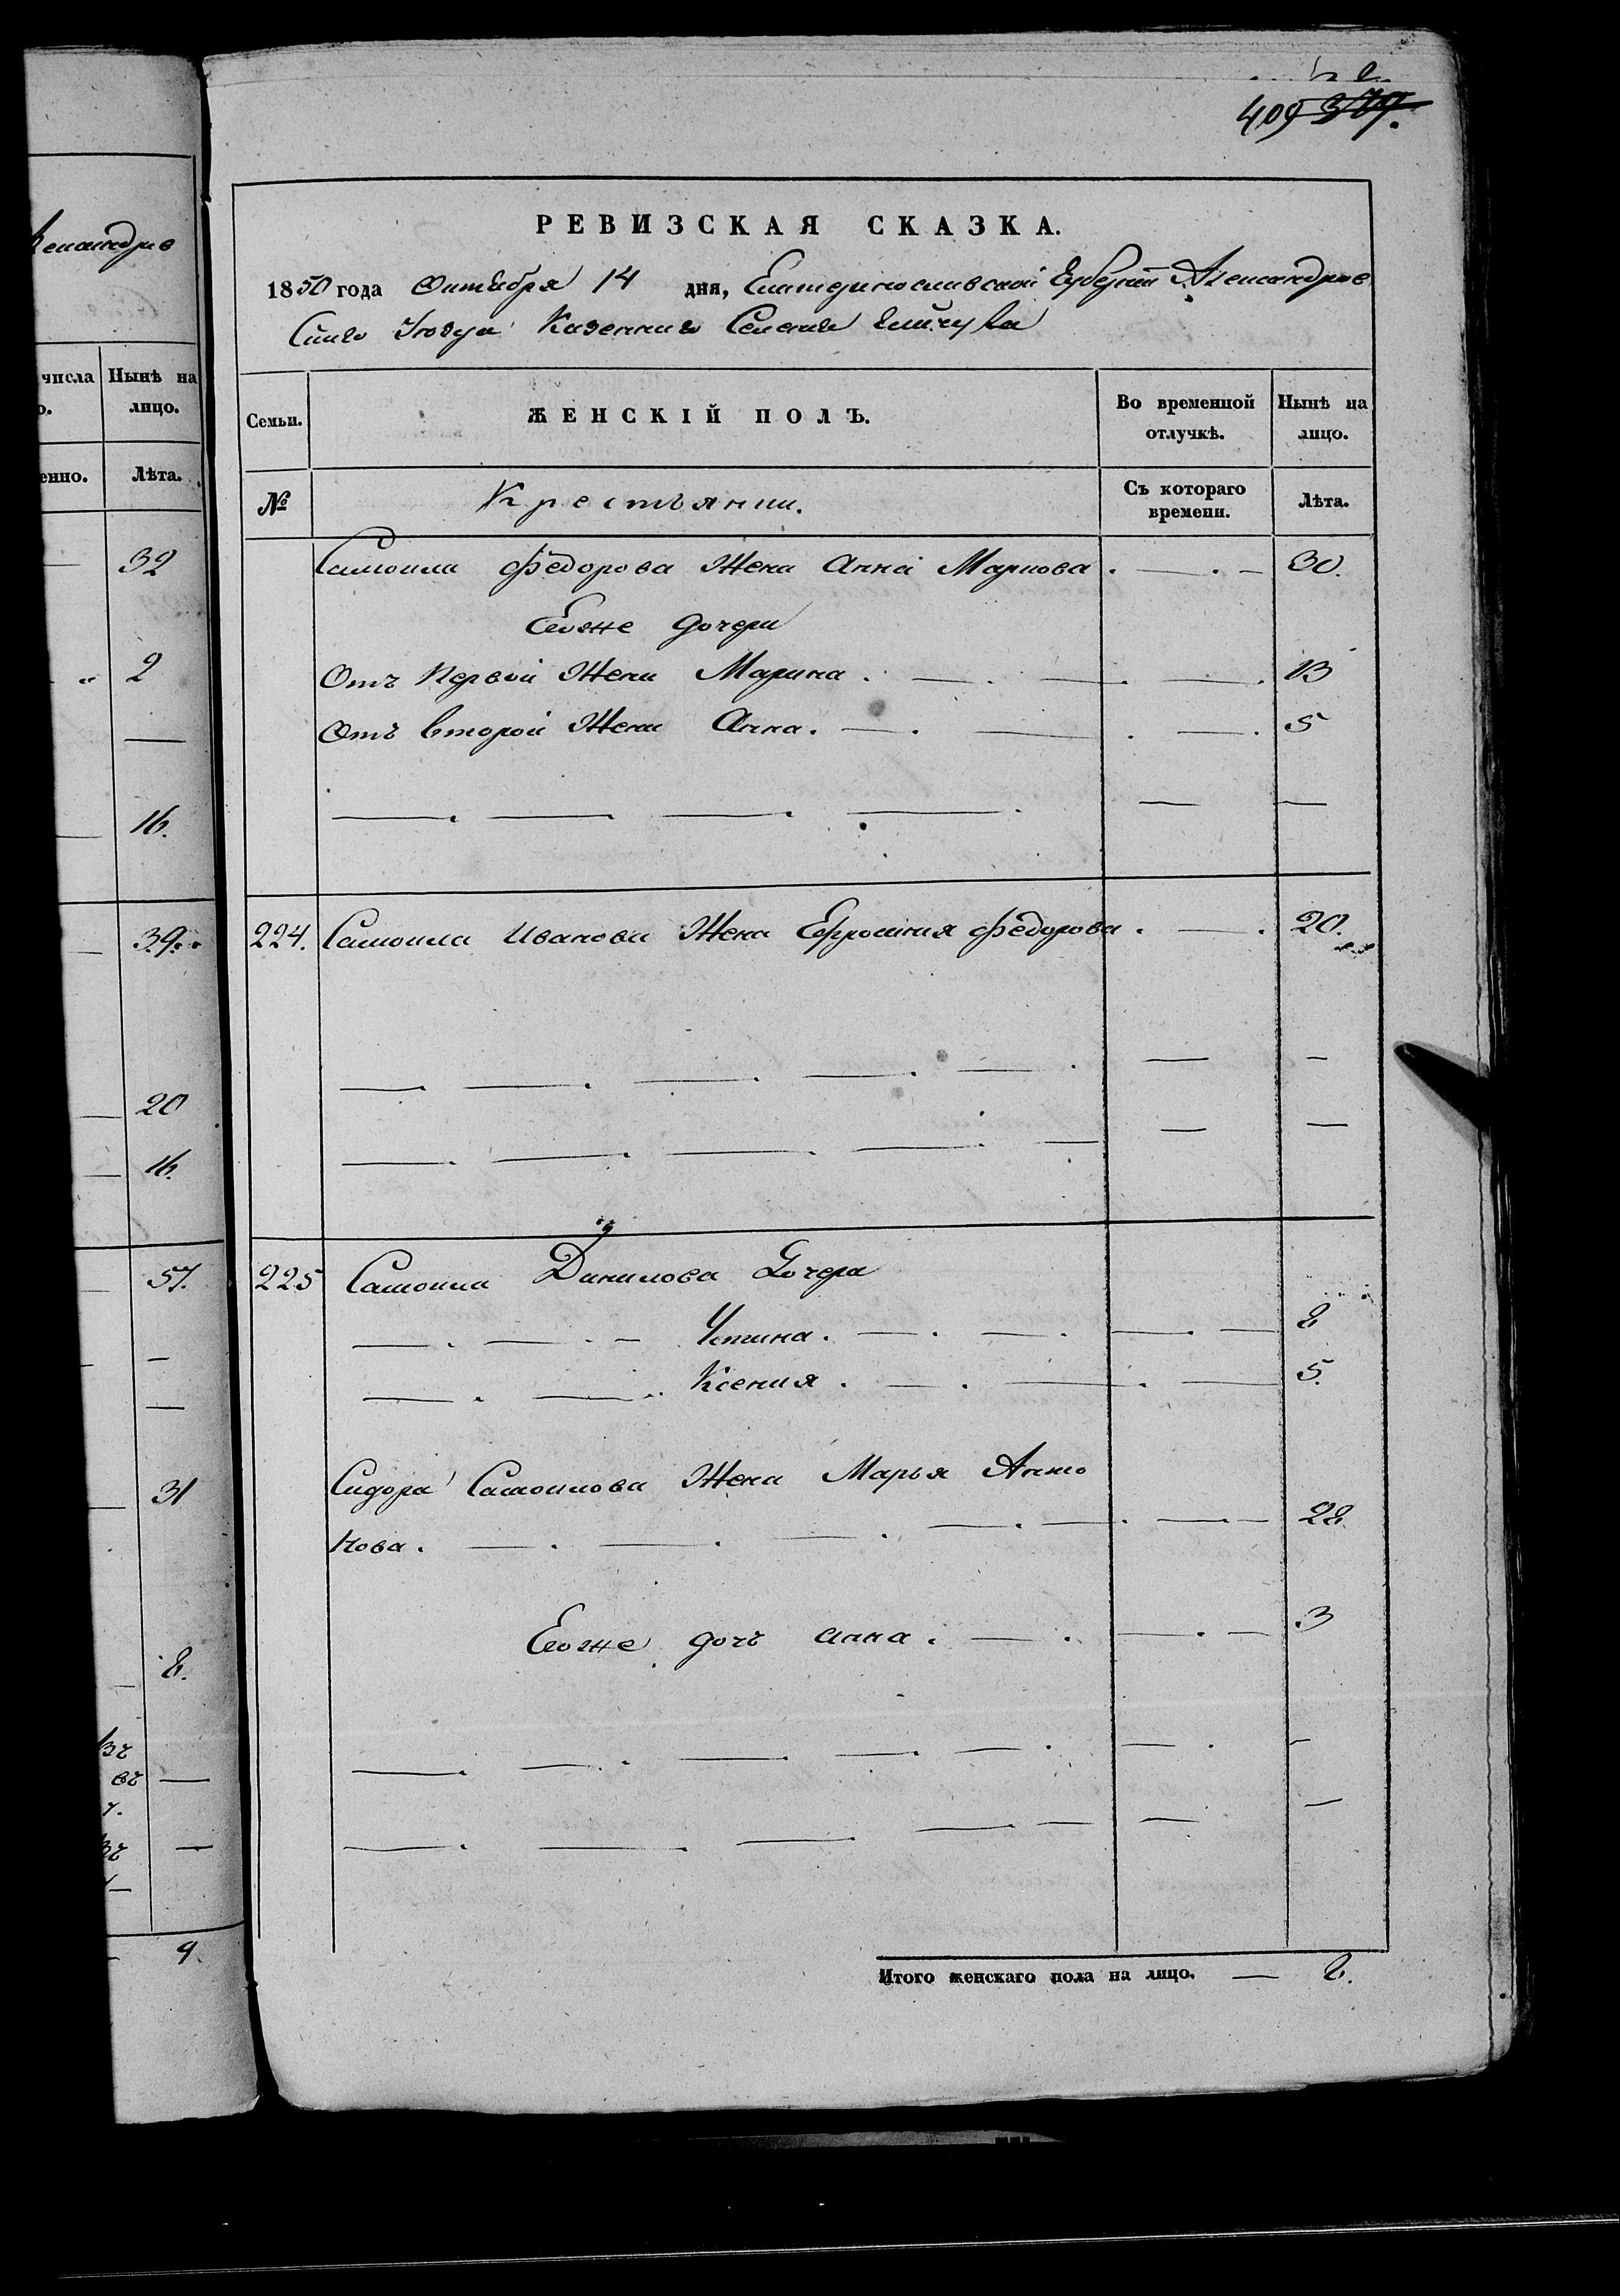 409 379.
РЕВИЗСКАЯ СКАЗКА.
1850 года Октября 14 дня, Екатеринославской Губернии Александров
Скаго Уезда Казеннаго Селения
ксандров
числа
Нынѣ на лицо.
енно.
Лѣта.
32
2
16.
39.
20
16.
57.
31
8.
9.
Семьи.
ЖЕНСКІЙ ПОЛЪ.
Во временной отлучкѣ.
Нынѣ на лицо.
№
Крестьянки.
Съ котораго времени.
Лѣта.
Самоила Федорова Жена Анна Маркова 30.
Егоже дочери
Отъ Первой Жены Марина 13
Отъ второй Жены Анна 5
224. Самоила Иванова Жена Ефросиния Федорова 20.
225 Самоила Данилова Дочери
Устина 8
Ксения 5.
Сидора Самоилова Жена Марья Анто
нова 28
Егоже дочь Анна 3
Итого женскаго пола на лицо. — 8.